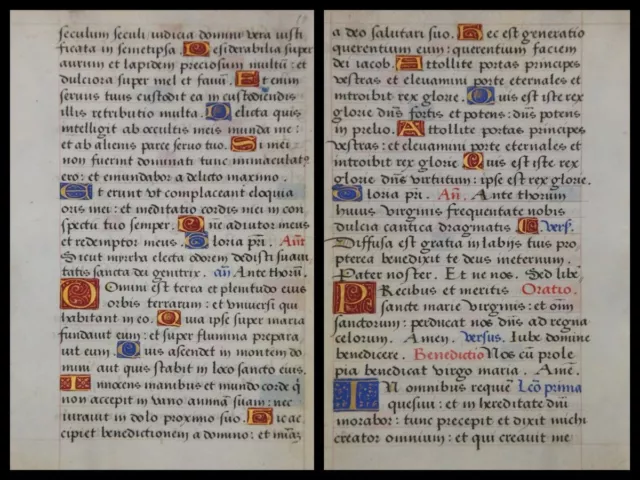 seculum seculi iudicia domini vera iusti
ficata in semetipsa. Desiderabilia super
aurum et lapidem preciosum multū: et
dulciora super mel et fauū. Et enim
seruus tuus custodit ea in custodiendis
illis retributio multa. Delicta quis
intelligit ab occultis meis munda me:
et ab alienis parce seruo tuo. Si mei
non fuerint dominati tunc immaculatꝰ
ero: et emundabor a delicto maximo.
Et erunt vt complaceant eloquia
oris mei: et meditatio cordis mei in con
spectu tuo semper. Dne adiutor meus
et redemptor meus. Gloria pr̄i. An̄
Sicut myrrha electa odorem dedisti suaui
tatis sancta dei genitrix. an̄. Ante thorū.
Domini est terra et plenitudo eius
orbis terrarum: et vniuersi qui
habitant in eo. Quia ipse super maria
fundauit eum: et super flumina prepara
uit eum. Quis ascendet in montem do
mini aut quis stabit in loco sancto eius.
Innocens manibus et mundo corde q̄
non accepit in vano animā suam: nec
iurauit in dolo proximo suo. Hic ac
cipiet benedictionem a domino: et
a deo salutari suo. Hec est generatio
querentium eum: querentium faciem
dei iacob. Attollite portas principes
vestras et eleuamini porte eternales et
introibit rex glorie. Quis est iste rex
glorie dn̄s fortis et potens: dn̄s potens
in prelio. Attollite portas principes
vestras: et eleuamini porte eternales et
introibit rex glorie. Quis est iste rex
glorie dn̄s virtutum: ipse est rex glorie.
Gloria pr̄i. An̄. Ante thorum
huius virginis frequentate nobis
dulcia cantica dragmatis. Vers.
Diffusa est gratia in labijs tuis pro
pterea benedixit te deus in eternum.
Pater noster. Et ne nos. Sed libe
Precibus et meritis Oratio.
sancte marie virginis: et om̄
sanctorum: perducat nos dn̄s ad regna
celorum. Amen. Versus. Iube domine
benedicere. Benedictio Nos cū prole
pia benedicat virgo maria. Amē.
In omnibus requiē Lco̅ prima
quesiui: et in hereditate dn̄i
morabor: tunc precepit et dixit michi
creator omnium: et qui creauit me